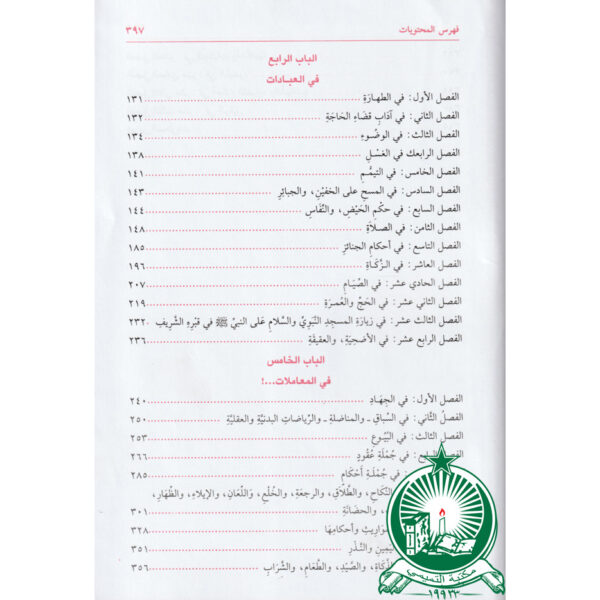 فهرس المحتويات ٣٩٧
الباب الرابع
في العبادات
الفصل الأول: في الطهارَةِ ١٣١
الفصل الثاني: في آدَابِ قضَاءِ الحَاجَةِ ١٣٢
الفصل الثالث: في الوضُوءِ ١٣٤
الفصل الرابعك في الغسْلِ ١٣٨
الفصل الخامس: في التيمُّمِ ١٤١
الفصل السادس: في المسحِ على الخفيْنِ، والجبائرِ ١٤٣
الفصل السابع: في حكْمِ الحَيْضِ، والنِّفَاسِ ١٤٤
الفصل الثامن: في الصلَاةِ ١٤٨
الفصل التاسع: في أحكامِ الجنائزِ ١٨٥
الفصل العاشر: في الزَّكَاةِ ١٩٦
الفصل الحادي عشر: في الصِّيَامِ ٢٠٧
الفصل الثاني عشر: في الحَجِّ والعُمرَةِ ٢١٩
الفصل الثالث عشر: في زيارَةِ المسجدِ النَّبَوِيِّ والسَّلامِ عَلى النبيِّ ﷺ في قبْرِهِ الشَّرِيفِ ٢٣٢
الفصل الرابع عشر: في الأضحيَةِ، والعقيقَةِ ٢٣٦
الباب الخامس
في المعاملات...!
الفصل الأول: في الجهَادِ ٢٤٠
الفصلُ الثَّاني: في السِّباقِ ـ والمناضلَةِ ـ والرِّياضاتِ البدنيَّةِ والعقليَّةِ ٢٥٠
الفصل الثالث: في البُيُوعِ ٢٥٣
الفصل في جُمْلَةِ عُقُودٍ ٢٦٦
في جُمْلَةِ أَحْكَامٍ ٢٨٥
النِّكَاحِ، والطَّلَاقِ، والرجعَةِ، والخُلْعِ، وَاللِّعَانِ، والإيلاءِ، والظِّهَارِ،
والحضَانَةِ ٣٠١
وأحكامِهَا ٣٢٨
والنَّذْرِ ٣٥١
والصَّيْدِ، والطَّعَامِ، والشَّرَابِ ٣٥٦
مكتبة التميمي
١٩٩٣